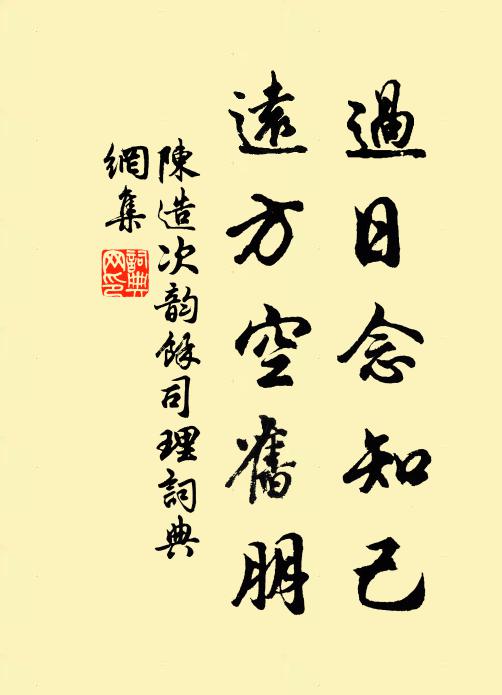 過日念知己
遠方空舊朋
陳造次韵餘司理詞典
網集
詞典
网印